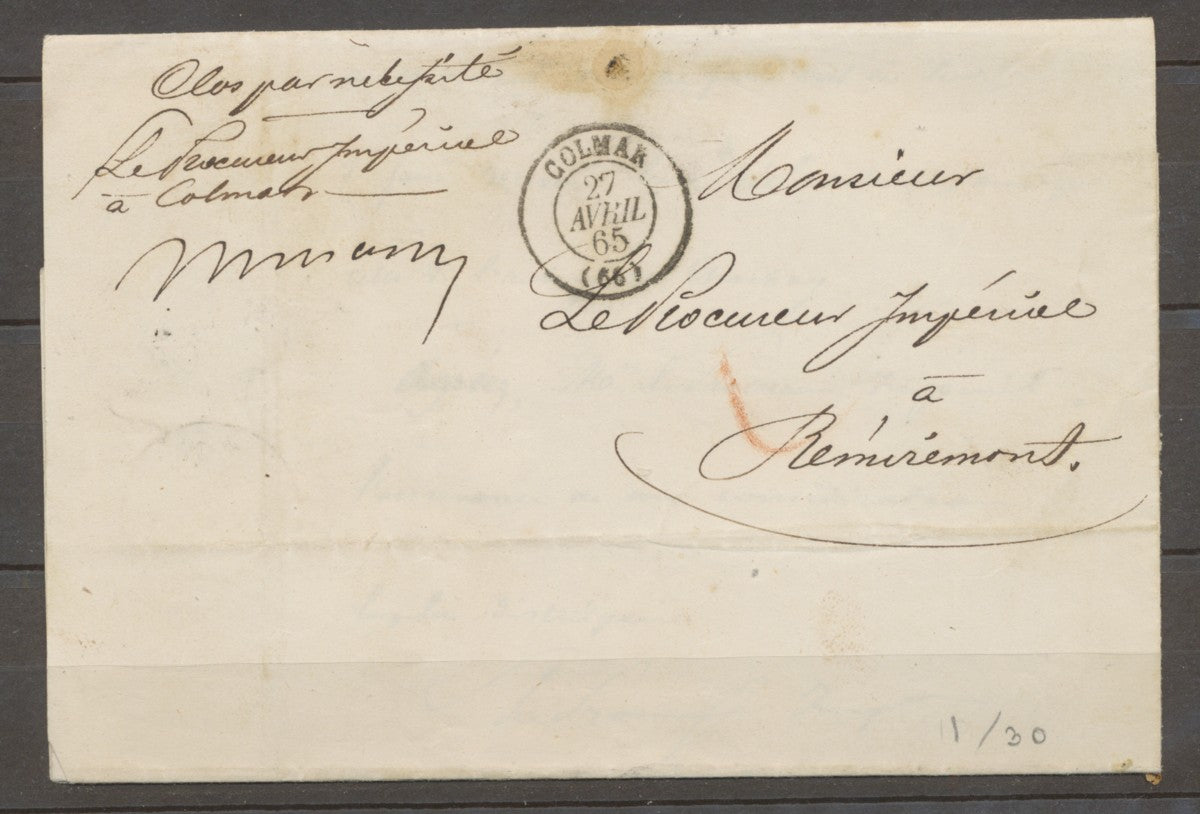 Clos par nécessité
Le Procureur Impérial
à Colmar
COLMAR
27
AVRIL
65
(66)
Monsieur
Le Procureur Impérial
à
Rémirémont.
1/30